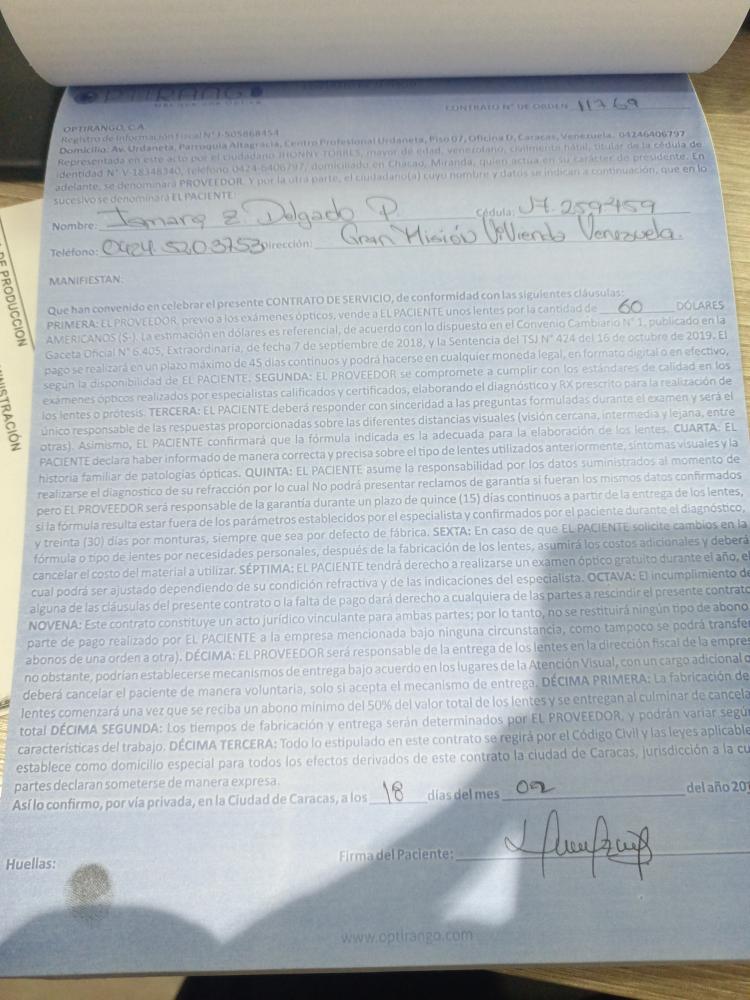 OPTIRANGO
CONTRATO N° DE ORDEN 11769
OPTIRANGO, C.A.
Registro de Información Fiscal N° J-505868454
Domicilio: Av. Urdaneta, Parroquia Altagracia, Centro Profesional Urdaneta, Piso 07, Oficina D, Caracas, Venezuela. 04246406797
Representada en este acto por el ciudadano JHONNY TORRES, mayor de edad, venezolano, civilmente hábil, titular de la cédula de
identidad N° V-18348340, teléfono 0424-6406797, domiciliado en Chacao, Miranda, quien actua en su carácter de presidente. En
adelante, se denominará PROVEEDOR. Y por la otra parte, el ciudadano(a) cuyo nombre y datos se indican a continuación, que en lo
sucesivo se denominará EL PACIENTE:
Nombre: Ismara Z. Delgado P. Cédula: 17.259459
Teléfono: 0424 5203753 Dirección: Gran Misión Vivienda Venezuela.
MANIFIESTAN:
Que han convenido en celebrar el presente CONTRATO DE SERVICIO, de conformidad con las siguientes cláusulas:
PRIMERA: EL PROVEEDOR, previo a los exámenes ópticos, vende a EL PACIENTE unos lentes por la cantidad de 60 DÓLARES
AMERICANOS ($-). La estimación en dólares es referencial, de acuerdo con lo dispuesto en el Convenio Cambiario N° 1, publicado en la
Gaceta Oficial N° 6.405, Extraordinaria, de fecha 7 de septiembre de 2018, y la Sentencia del TSJ N° 424 del 16 de octubre de 2019. El
pago se realizará en un plazo máximo de 45 días continuos y podrá hacerse en cualquier moneda legal, en formato digital o en efectivo,
según la disponibilidad de EL PACIENTE. SEGUNDA: EL PROVEEDOR se compromete a cumplir con los estándares de calidad en los
exámenes ópticos realizados por especialistas calificados y certificados, elaborando el diagnóstico y RX prescrito para la realización de
los lentes o prótesis. TERCERA: EL PACIENTE deberá responder con sinceridad a las preguntas formuladas durante el examen y será el
único responsable de las respuestas proporcionadas sobre las diferentes distancias visuales (visión cercana, intermedia y lejana, entre
otras). Asimismo, EL PACIENTE confirmará que la fórmula indicada es la adecuada para la elaboración de los lentes. CUARTA: EL
PACIENTE declara haber informado de manera correcta y precisa sobre el tipo de lentes utilizados anteriormente, síntomas visuales y la
historia familiar de patologías ópticas. QUINTA: EL PACIENTE asume la responsabilidad por los datos suministrados al momento de
realizarse el diagnostico de su refracción por lo cual No podrá presentar reclamos de garantía si fueran los mismos datos confirmados
pero EL PROVEEDOR será responsable de la garantía durante un plazo de quince (15) días continuos a partir de la entrega de los lentes,
si la fórmula resulta estar fuera de los parámetros establecidos por el especialista y confirmados por el paciente durante el diagnóstico,
y treinta (30) días por monturas, siempre que sea por defecto de fábrica. SEXTA: En caso de que EL PACIENTE solicite cambios en la
fórmula o tipo de lentes por necesidades personales, después de la fabricación de los lentes, asumirá los costos adicionales y deberá
cancelar el costo del material a utilizar. SÉPTIMA: EL PACIENTE tendrá derecho a realizarse un examen óptico gratuito durante el año, el
cual podrá ser ajustado dependiendo de su condición refractiva y de las indicaciones del especialista. OCTAVA: El incumplimiento de
alguna de las cláusulas del presente contrato o la falta de pago dará derecho a cualquiera de las partes a rescindir el presente contrato
NOVENA: Este contrato constituye un acto jurídico vinculante para ambas partes; por lo tanto, no se restituirá ningún tipo de abono
parte de pago realizado por EL PACIENTE a la empresa mencionada bajo ninguna circunstancia, como tampoco se podrá transfe
abonos de una orden a otra). DÉCIMA: EL PROVEEDOR será responsable de la entrega de los lentes en la dirección fiscal de la empre
no obstante, podrían establecerse mecanismos de entrega bajo acuerdo en los lugares de la Atención Visual, con un cargo adicional
deberá cancelar el paciente de manera voluntaria, solo si acepta el mecanismo de entrega. DÉCIMA PRIMERA: La fabricación de
lentes comenzará una vez que se reciba un abono mínimo del 50% del valor total de los lentes y se entregan al culminar de cancela
total DÉCIMA SEGUNDA: Los tiempos de fabricación y entrega serán determinados por EL PROVEEDOR, y podrán variar segú
características del trabajo. DÉCIMA TERCERA: Todo lo estipulado en este contrato se regirá por el Código Civil y las leyes aplicable
establece como domicilio especial para todos los efectos derivados de este contrato la ciudad de Caracas, jurisdicción a la cu
partes declaran someterse de manera expresa.
Así lo confirmo, por vía privada, en la Ciudad de Caracas, a los 18 días del mes 02 del año 20
Huellas:
Firma del Paciente:
www.optirango.com
DE PRODUCCION
MINISTRACIÓN